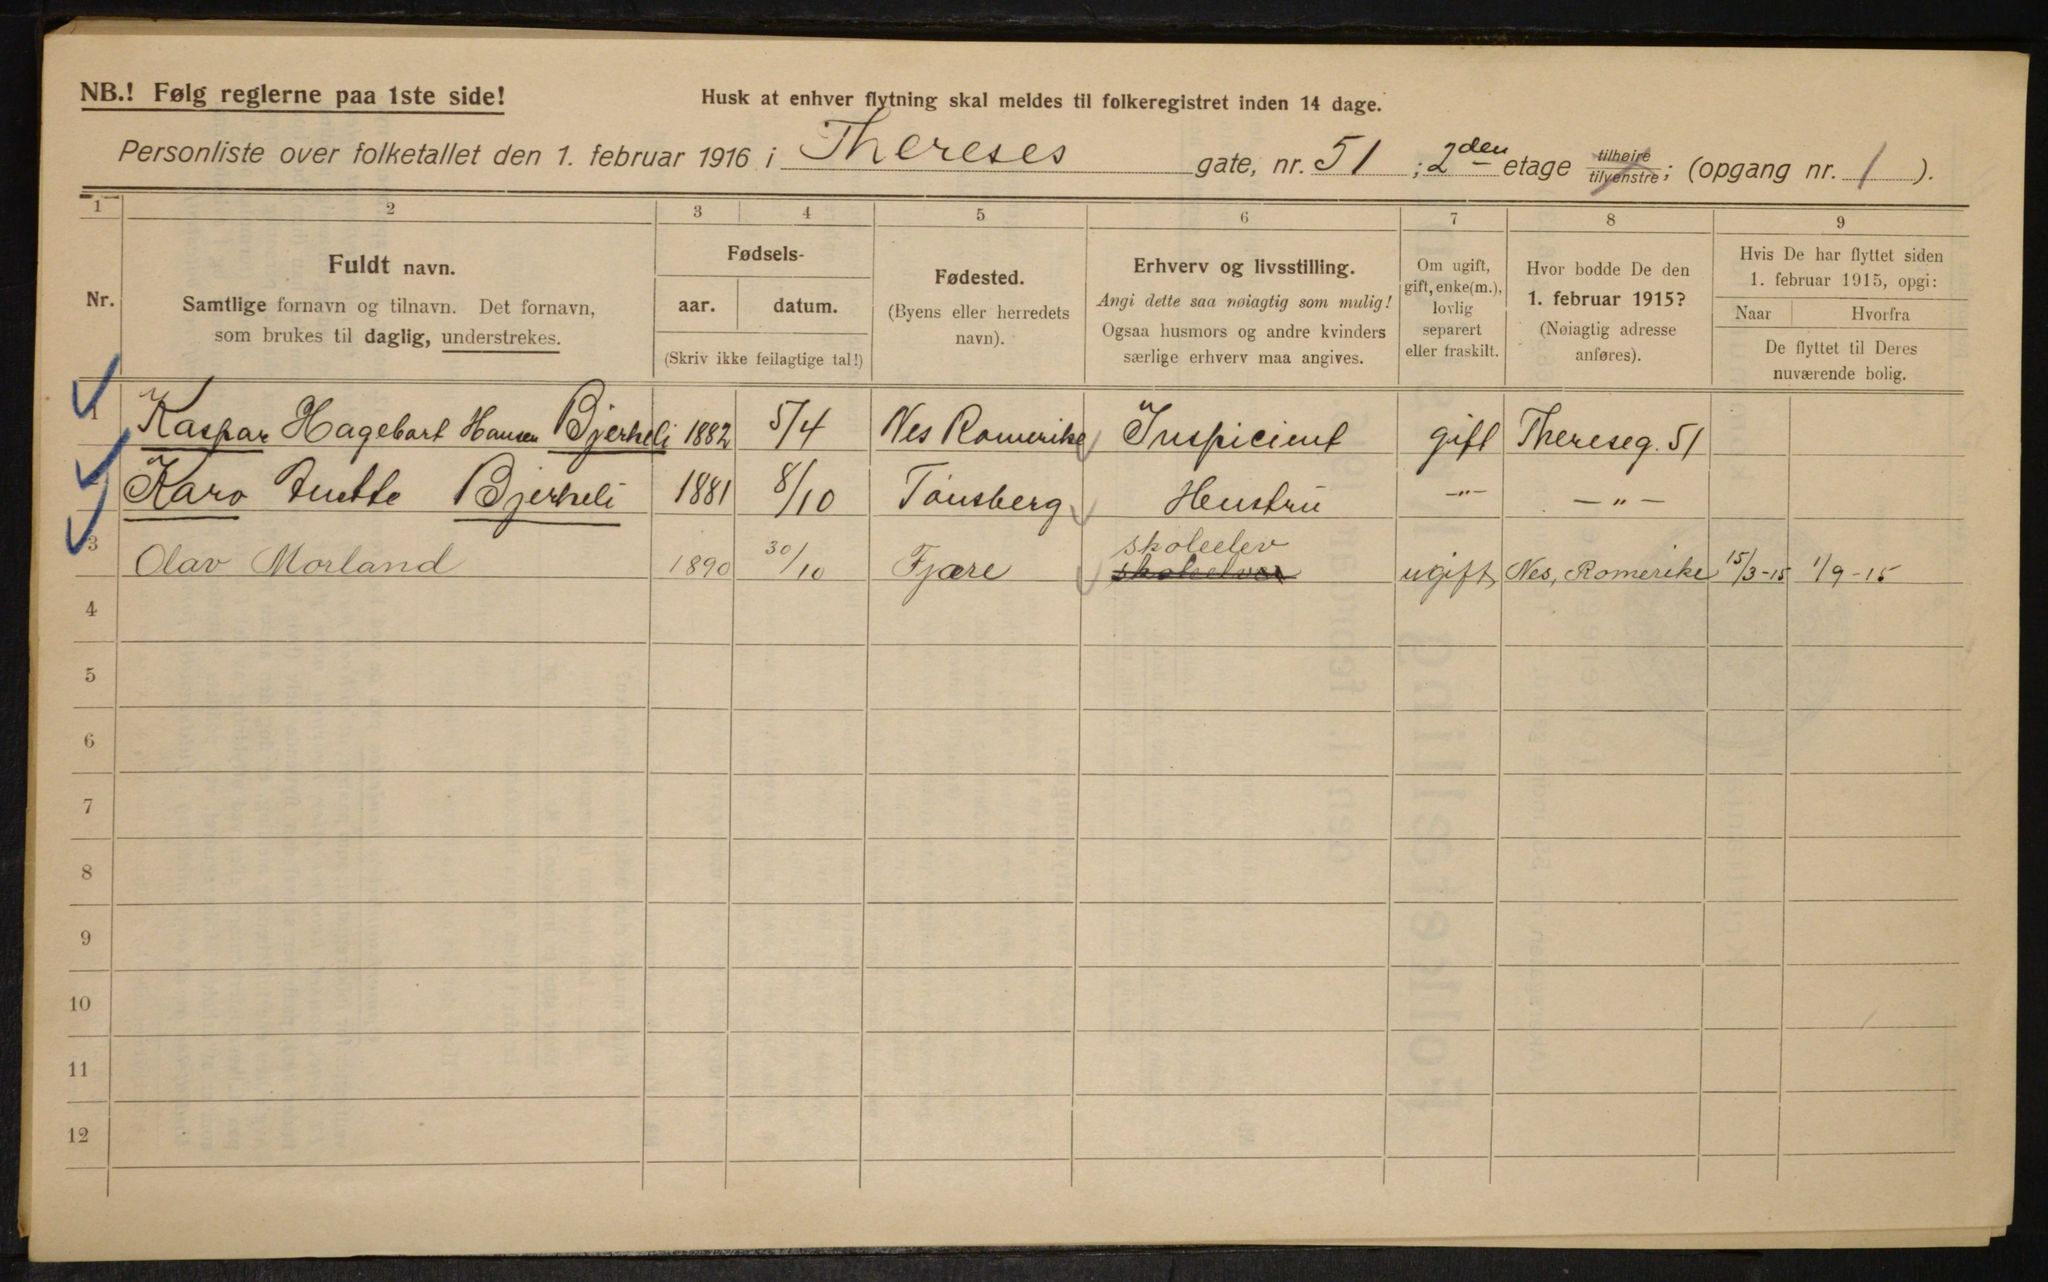 NB.! Følg reglerne paa 1ste side!
Husk at enhver flytning skal meldes til folkeregistret inden 14 dage.
Personliste over folketallet den 1. februar 1916 i Thereses gate, nr. 51 ; 2den etage tilhøire tilvenstre; (opgang nr. 1 ).
1 2 3 4 5 6 7 8 9
Nr.
Fuldt navn.
Samtlige fornavn og tilnavn. Det fornavn,
som brukes til daglig, understrekes.
Fødsels-
aar. datum.
(Skriv ikke feilagtige tal!)
Fødested.
(Byens eller herredets
navn).
Erhverv og livsstilling.
Angi dette saa nøiagtig som mulig!
Ogsaa husmors og andre kvinders
særlige erhverv maa angives.
Om ugift,
gift, enke(m.),
lovlig
separert
eller fraskilt.
Hvor bodde De den
1. februar 1915?
(Nøiagtig adresse
anføres).
Hvis De har flyttet siden
1. februar 1915, opgi:
Naar Hvorfra
De flyttet til Deres
nuværende bolig.
1 Kaspar Hagebart Hansen Bjerkeli 1882 5/4 Nes Romerike Inspicient gift Thereseg. 51
Karo Anette Bjerkeli 1881 8/10 Tønsberg Hustru —"— —"—
skoleelev
3 Olav Morland 1890 30/10 Fjære ugift Nes, Romerike 15/3-15 1/9-15
4
5
6
7
8
9
10
11
12